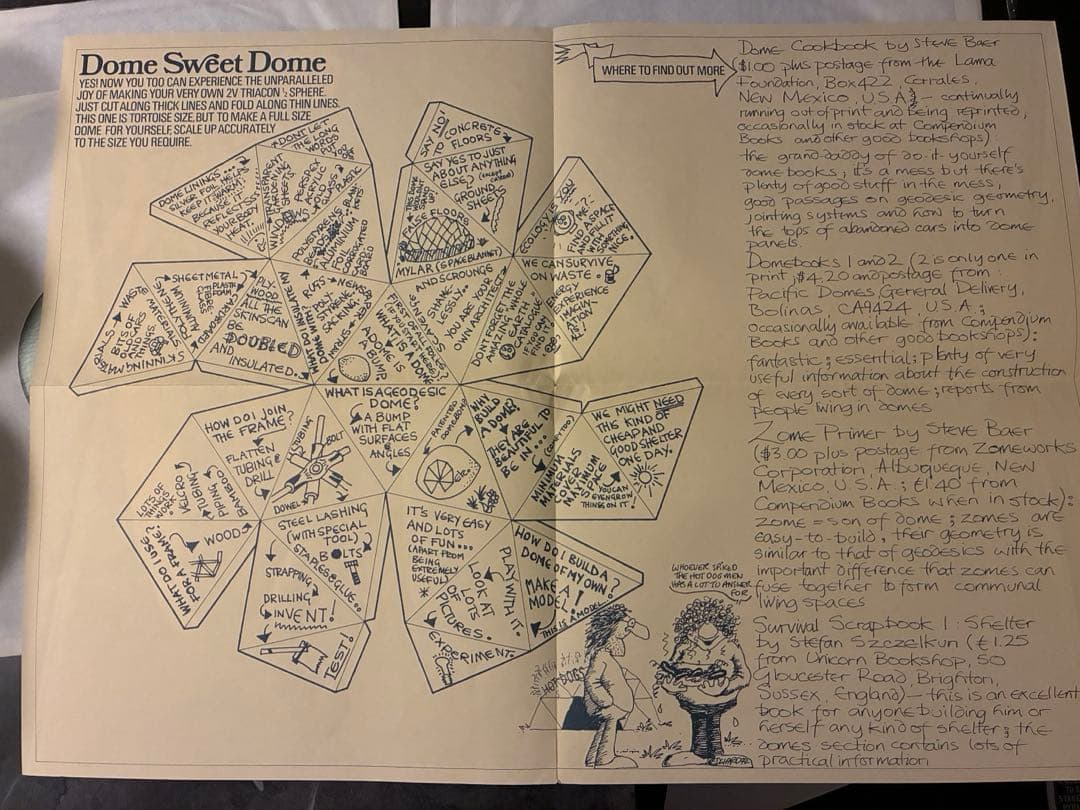 Dome Sweet Dome
YES! NOW YOU TOO CAN EXPERIENCE THE UNPARALLELED
JOY OF MAKING YOUR VERY OWN 2V TRIACON ½ SPHERE.
JUST CUT ALONG THICK LINES AND FOLD ALONG THIN LINES.
THIS ONE IS TORTOISE SIZE, BUT TO MAKE A FULL SIZE
DOME FOR YOURSELF, SCALE UP ACCURATELY
TO THE SIZE YOU REQUIRE.
DOME LININGS...
SILVER FOIL
KEEP IT WARM
BECAUSE IT
REFLECTS
YOUR BODY
HEAT
DONT LET
THE LONG
WORDS
PUT
YOU
OFF
TRANSPARENT
GARDENING
SHEETS
PERSPEX
ACRYLIC
GLASS
PLASTIC
WINDOWS
ALUMINIUM
CORRUGATED
SAY NO!
TO
CONCRETE
FLOORS
SAY YES TO JUST
ABOUT ANYTHING
ELSE?
GROUND
SHEETS
FAKE FLOORS
MYLAR (SPACE BLANKET)
ECOLOGY
YOU
FIND A SPACE
AND FILL IT
WITH
SOMETHING
NICE.
WE CAN SURVIVE
ON WASTE.
ENERGY
EXPERIENCE
IMAGIN-
ATION
AND SCROUNGE
SHAME-
LESSLY...
YOU ARE YOUR
OWN ARCHITECT
DONT FORGET THE
AMAZING WHOLE
EARTH
CATALOGUE
IF YOU
CAN
FIND
ONE!
WHAT IS A DOME?
A DOME IS
A BUMP
RUGS
NEWSPAPER
WHAT DO I INSULATE MY
SHEETMETAL
PLASTIC
FOAM
FIBREGLASS
ALUMINIUM
CARDBOARD
WASTE
BITS OF
OLD CARS
AND
THINGS
SKINNING MATERIALS
PLY-
WOOD
ALL THE
SKINS CAN
BE
DOUBLED
AND
INSULATED.
WHAT IS A GEODESIC
DOME?
A BUMP
WITH FLAT
SURFACES
&
ANGLES
PATENTED
DOME BOMB
WHY
BUILD
A DOME?
THEY ARE
BEAUTIFUL TO
BE IN...
(SEXY TOO)
MINIMUM
MATERIALS
COVER
MAXIMUM
SPACE
WE MIGHT NEED
THIS KIND OF
CHEAP AND
GOOD SHELTER
ONE DAY.
YOU CAN
EVEN GROW
THINGS ON IT!
HOW DO I JOIN
THE FRAME?
FLATTEN
TUBING &
DRILL
TUBING
BOLT
DOWEL
LOTS OF
THINGS
WORK
ELECTRO
PIPING
TUBING
BAMBOO
WOODS
WHAT DO I USE
FOR A FRAME?
STEEL LASHING
(WITH SPECIAL
TOOL)
BOLTS
STAPLES & GLUE...
STRAPPING
DRILLING
INVENT!
TEST!
IT'S VERY EASY
AND LOTS
OF FUN...
(APART FROM
BEING
EXTREMELY
USEFUL)
LOOK AT
LOTS
OF
PICTURES.
PLAY WITH IT.
EXPERIMENT.
HOW DO I BUILD A
DOME OF MY OWN?
MAKE
A
MODEL!
THIS IS A MODEL
HOT DOGS
WHOEVER SPIKED
THE HOT DOGS MEN
HAS A LOT TO ANSWER
FOR
WHERE TO FIND OUT MORE
Dome Cookbook by STEVE BAER
$1.00 plus postage from the Lama
Foundation, Box 422, Corrales,
New Mexico, U.S.A. — continually
running out of print and being reprinted,
occasionally in stock at Compendium
Books and other good bookshops)
the grand-daddy of do-it-yourself
dome books; it's a mess but there's
plenty of good stuff in the mess,
good passages on geodesic geometry,
jointing systems and how to turn
the tops of abandoned cars into dome
panels.
Domebooks 1 and 2 (2 is only one in
print, $4.20 and postage from
Pacific Domes, General Delivery,
Bolinas, CA 9424, U.S.A.;
occasionally available from Compendium
Books and other good bookshops):
fantastic; essential; plenty of very
useful information about the construction
of every sort of dome; reports from
people living in domes
Zome Primer by Steve Baer
($3.00 plus postage from Zomeworks
Corporation, Albuqueque, New
Mexico, U.S.A.; £1.40 from
Compendium Books when in stock):
zome = son of dome; zomes are
easy-to-build, their geometry is
similar to that of geodesics with the
important difference that zomes can
fuse together to form communal
living spaces
Survival Scrapbook 1: Shelter
by Stefan Szczelkun (£1.25
from Unicorn Bookshop, 50
Gloucester Road, Brighton,
Sussex, England) — this is an excellent
book for anyone building him or
herself any kind of shelter; the
domes section contains lots of
practical information